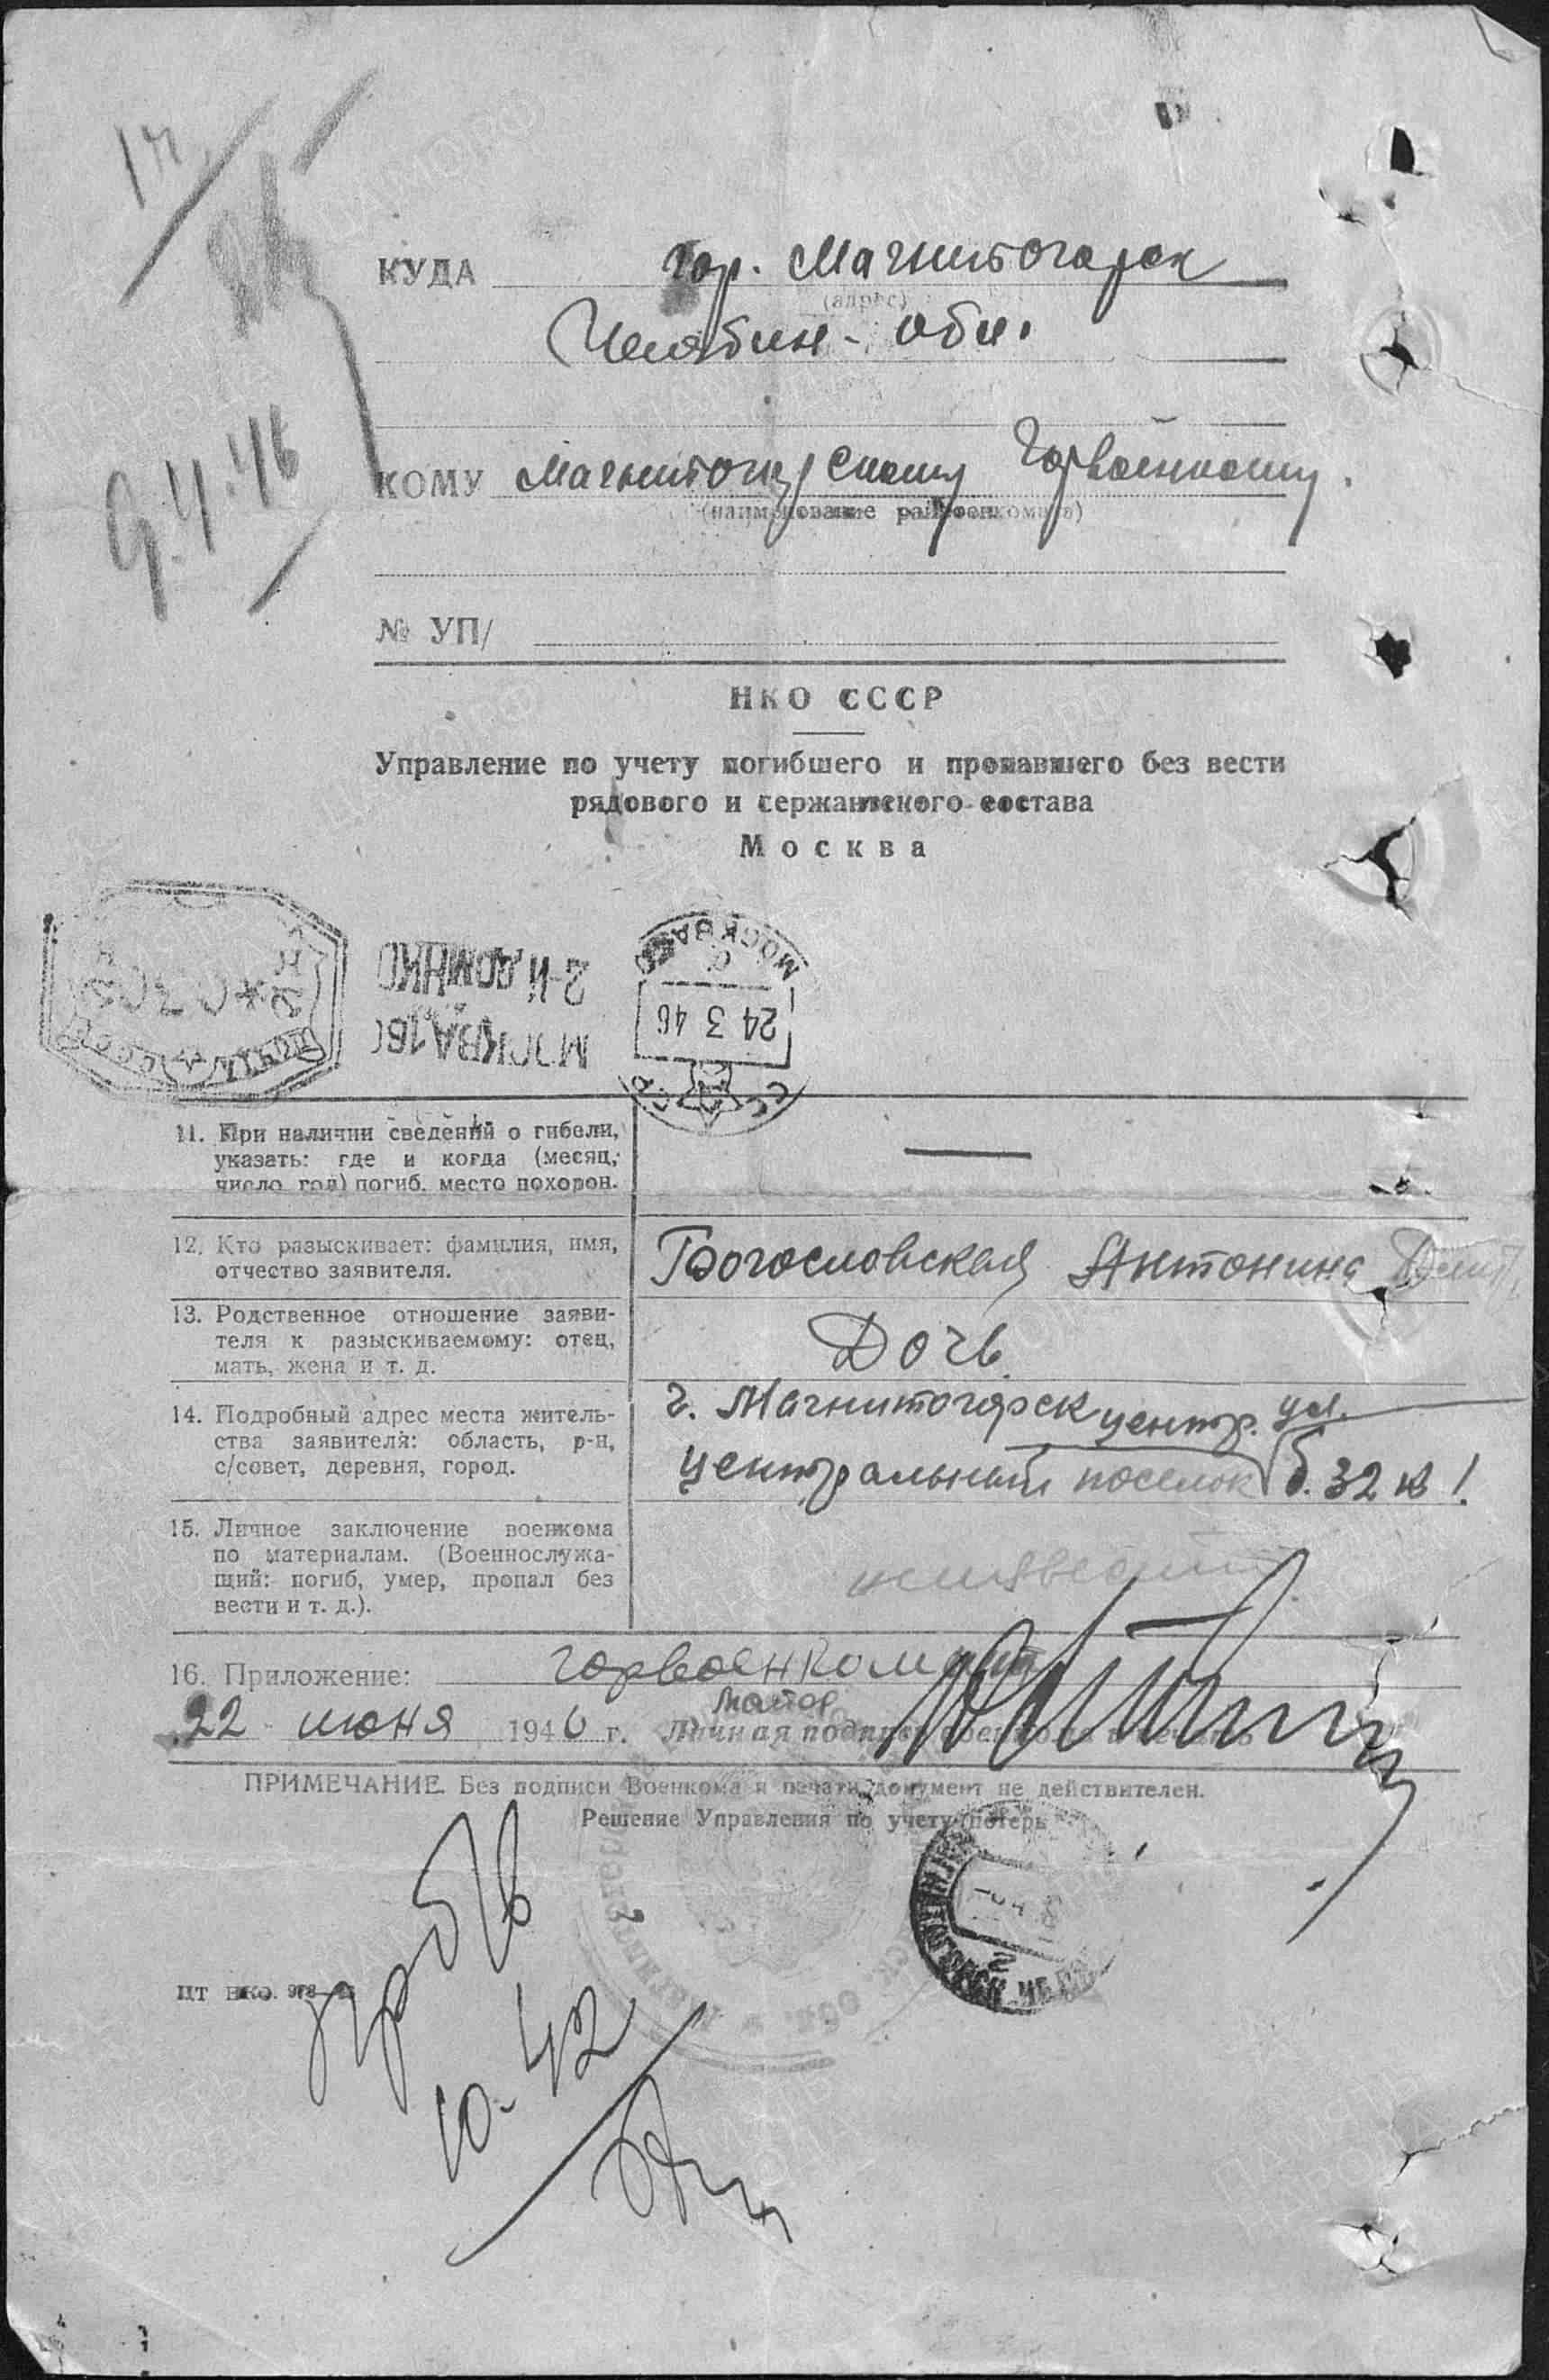 9.4.46
КУДА гор. Магнитогорск
(адрес)
Челябин. обл.
КОМУ Магнитогорскому Горвоенкому.
(наименование райвоенкомата)
№ УП/
НКО СССР
Управление по учету погибшего и пропавшего без вести
рядового и сержантского состава
Москва
МОСКВА
24 3 46
СССР
2-й дом НКО
МОСКВА 160
ПОЧТА СССР
11. При наличии сведений о гибели,
указать: где и когда (месяц,
число, год) погиб, место похорон.
—
12. Кто разыскивает: фамилия, имя,
отчество заявителя.
Богословская Антонина
13. Родственное отношение заяви-
теля к разыскиваемому: отец,
мать, жена и т. д.
Дочь
14. Подробный адрес места житель-
ства заявителя: область, р-н,
с/совет, деревня, город.
г. Магнитогорск центр. ул.
Центральный поселок б. 32 к 1.
15. Личное заключение военкома
по материалам. (Военнослужа-
щий: погиб, умер, пропал без
вести и т. д.).
16. Приложение: горвоенком
майор
22 июня 1946 г. Личная подпись военкома и печать
ПРИМЕЧАНИЕ. Без подписи Военкома и печати документ не действителен.
Решение Управления по учету потерь
МАГНИТОГОРСК ЧЕЛ
ЦТ НКО. 978
пр б/в
10.42